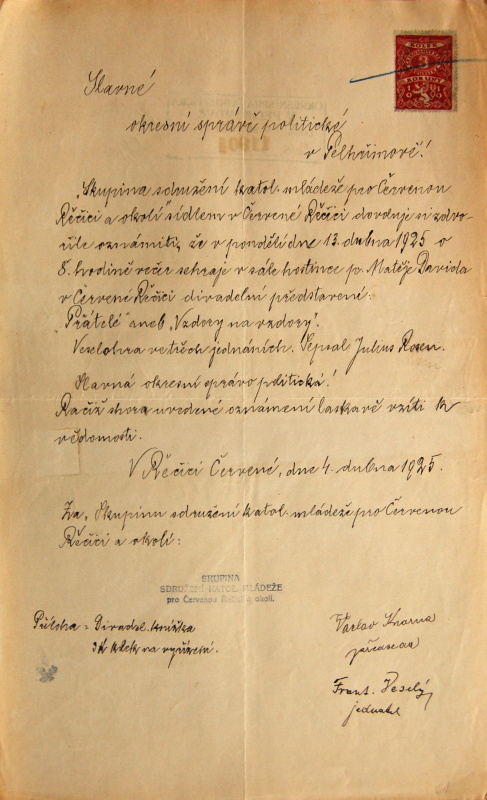 Slavné
okresní správě politické
v Pelhřimově!
„Skupina sdružení katol. mládeže pro Červenou
Řečici a okolí" sídlem v Červené Řečici dovoluje si zdvo-
řile oznámiti, že v pondělí dne 13. dubna 1925 o
8. hodině večer sehraje v sále hostince p. Matěje Davida
v Červené Řečici divadelní představení:
"Přátelé" aneb „Vzdory na vzdory".
Veselohra ve třech jednáních. Sepsal Julius Rosen.
Slavná okresní správo politická!
Račiž shora uvedené oznámení laskavě vzíti k
vědomosti.
V Řečici Červené, dne 4. dubna 1925.
Za „Skupinu sdružení katol. mládeže pro Červenou
Řečici a okolí:
SKUPINA
SDRUŽENÍ KATOL. MLÁDEŽE
pro Červenou Řečici a okolí.
Příloha = Divadel. knížka
kolek na vyřízení.
Václav
předseda
Frant. Veselý
jednatel
KOLEK
3
KORUNY
1919